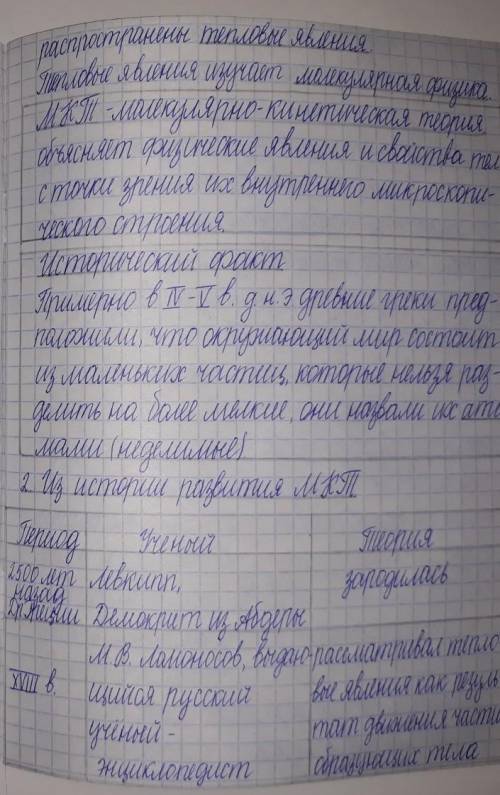 распространены тепловые явления.
Тепловые явления изучает молекулярная физика.
МКТ - молекулярно-кинетическая теория
объясняет физические явления и свойства тел
с точки зрения их внутреннего микроскопи-
ческого строения.
Исторический факт
Примерно в IV-V в. д н. э древние греки пред-
положили, что окружающий мир состоит
из маленьких частиц, которые нельзя раз-
делить на более мелкие, они назвали их ато
мами (неделимые)
2. Из истории развития МКТ
Период Ученый Теория
2500 лет Левкипп, зародилась
назад
Др. Демокрит из Абдеры
М.В. Ломоносов, выдаю- рассматривал тепло
XVIII в. щийся русский вые явления как резуль
учёный- тат движения части
энциклопедист образующих тела